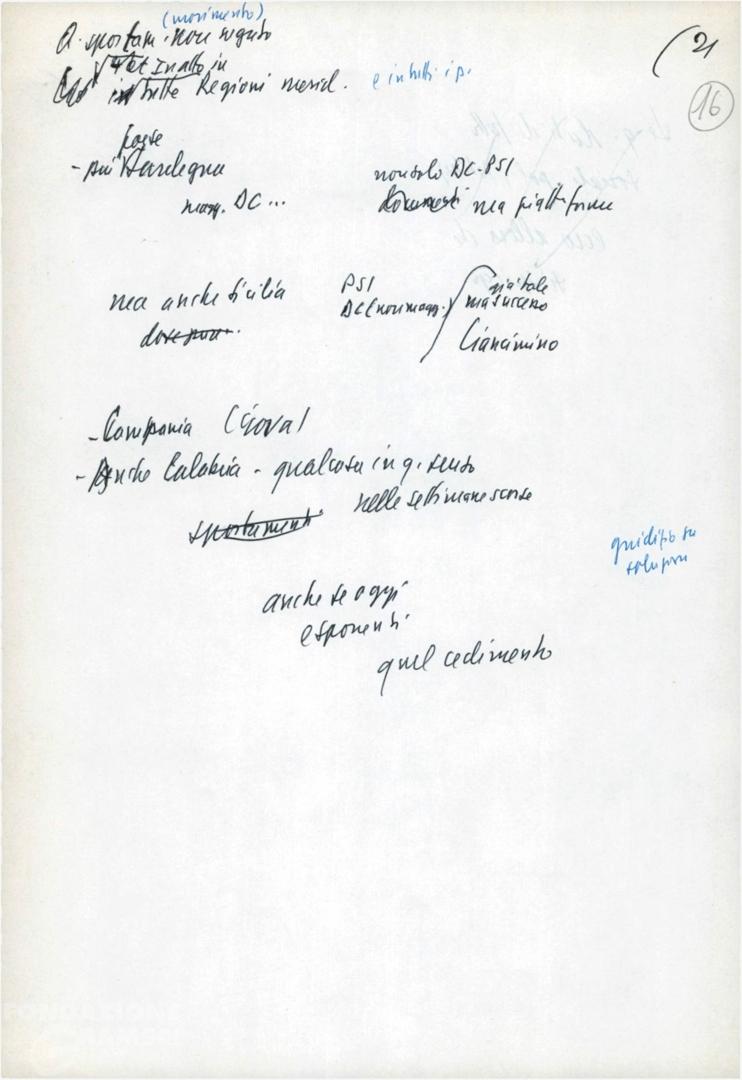 (movimento)
Q. spostam. non seguito
in atto in
in tutte Regioni merid. e in tutti i p.
(21
16
forse
- più Sardegna
magg. DC ...
non solo DC-PSI
documenti ma piattaforme
ma anche Sicilia
PSI
DC (non magg.
già tale
ma succeno
Ciancimino
- Campania (Gava)
- Anche Calabria - qualcosa in q. senso
nelle settimane scorse
spostamenti
giudizio su
anche se oggi
esponenti
quel cedimento
FONDAZIONE
GRAMSCI